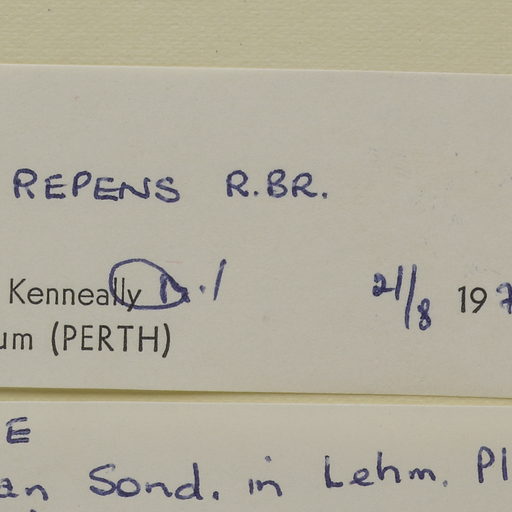 REPENS R.BR.
Kenneally 21/8 19
um (PERTH)
E
an Sond. in Lehm. Pl